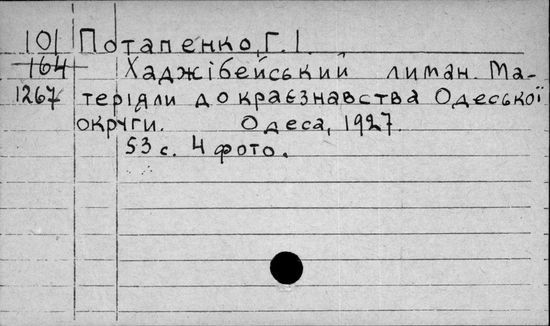 101 Потапенко, Г. І.
164 Хаджібейський лиман. Ма-
1267 теріяли до краєзнавства Одеської
округи. Одеса, 1927.
53 с. 4 фото.